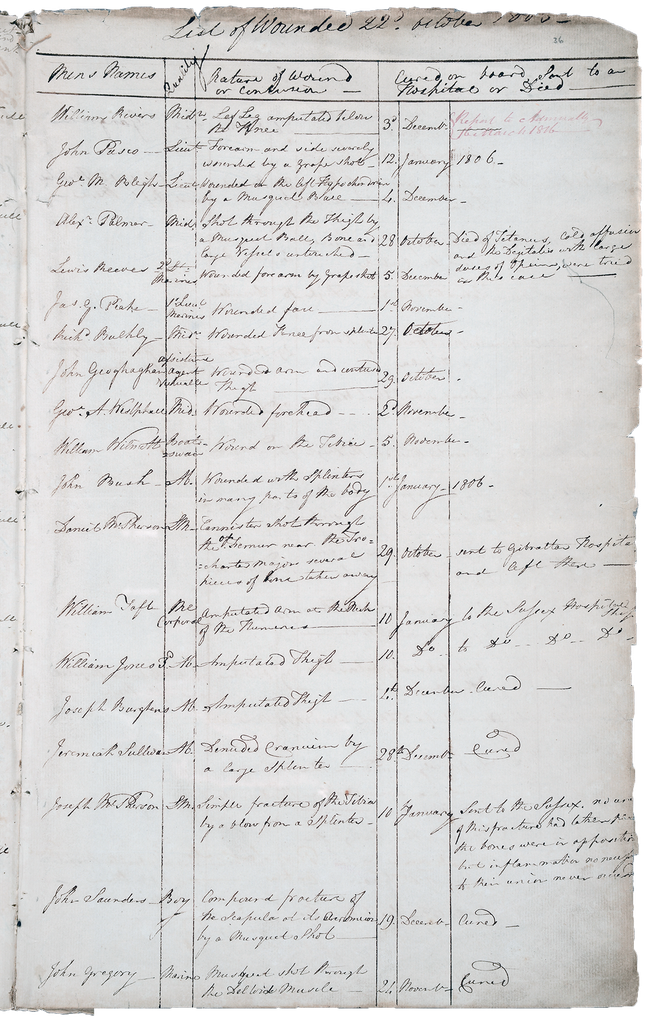 List of Wounded 22d. October 1805 -
26
Mens Names
Quality
Nature of Wound
or Contusion
Cured on board, Sent to an
Hospital or Died
William Rivers Midn. Left Leg amputated below
the Knee 3d. Decemb.
Report to Admiralty
John Pasco Lieut Forearm and side severely
wounded by a grape shot 12. January 1806 -
Geoe. M. Bligh Lieut Wounded in the left Hypochondrium
by a Musquet Ball 4. December -
Alexr. Palmer Mid. Shot through the Thigh by
a Musquet Ball, Bone and
large Vessels untouched 28 October - Died of Tetanus, Cold affusion
and the Digitalis with large
doses of Opium, were tried
in this case
Lewis Reeves 2d Lt. Marines Wounded forearm by grape shot 5. December
Jas. G. Peake 1st Lieut Marines Wounded face 1st November -
Richd. Bulkly Mid. Wounded Knee from splinter 27. October -
John Geoghaghan assistant agent victualler Wounded arm and contused
Thigh 29. October -
Geoe. A. Westphall Mid. Wounded forehead 2d November -
William Wilmott Boatswain Wound on the Tibia 5. November -
John Bush Ab. Wounded with Splinters
in many parts of the body 1st January 1806 -
Daniel McPherson Cannister shot through
the Os Femur near the Tro=
=chanter Major several
pieces of bone taken away 29. October sent to Gibraltar Hospital
and left there
William Taft Corporal Amputated arm at the Neck
of the Humerus 10 January to the Sussex Hospital Ship
William Jones Ab. Amputated Thigh 10. Do. to Do. Do. Do.
Joseph Burgen Ab. Amputated Thigh December Cured
Jeremiah Sullivan Ab. Denuded Cranium by
a large Splinter 28th Decemb. Cured
Joseph McPherson Simple fracture of the Tibia
by a blow from a Splinter - 10 January Sent to the Sussex. no
of this fracture had taken place
the bones were in apposition
but inflammation
to their union never
John Saunders Boy Compound fracture of
the Scapula at its Acromion
by a Musquet Shot 19. Decemb. Cured -
John Gregory Marine Musquet shot through
the Deltoid Muscle 24 Novemb. Cured